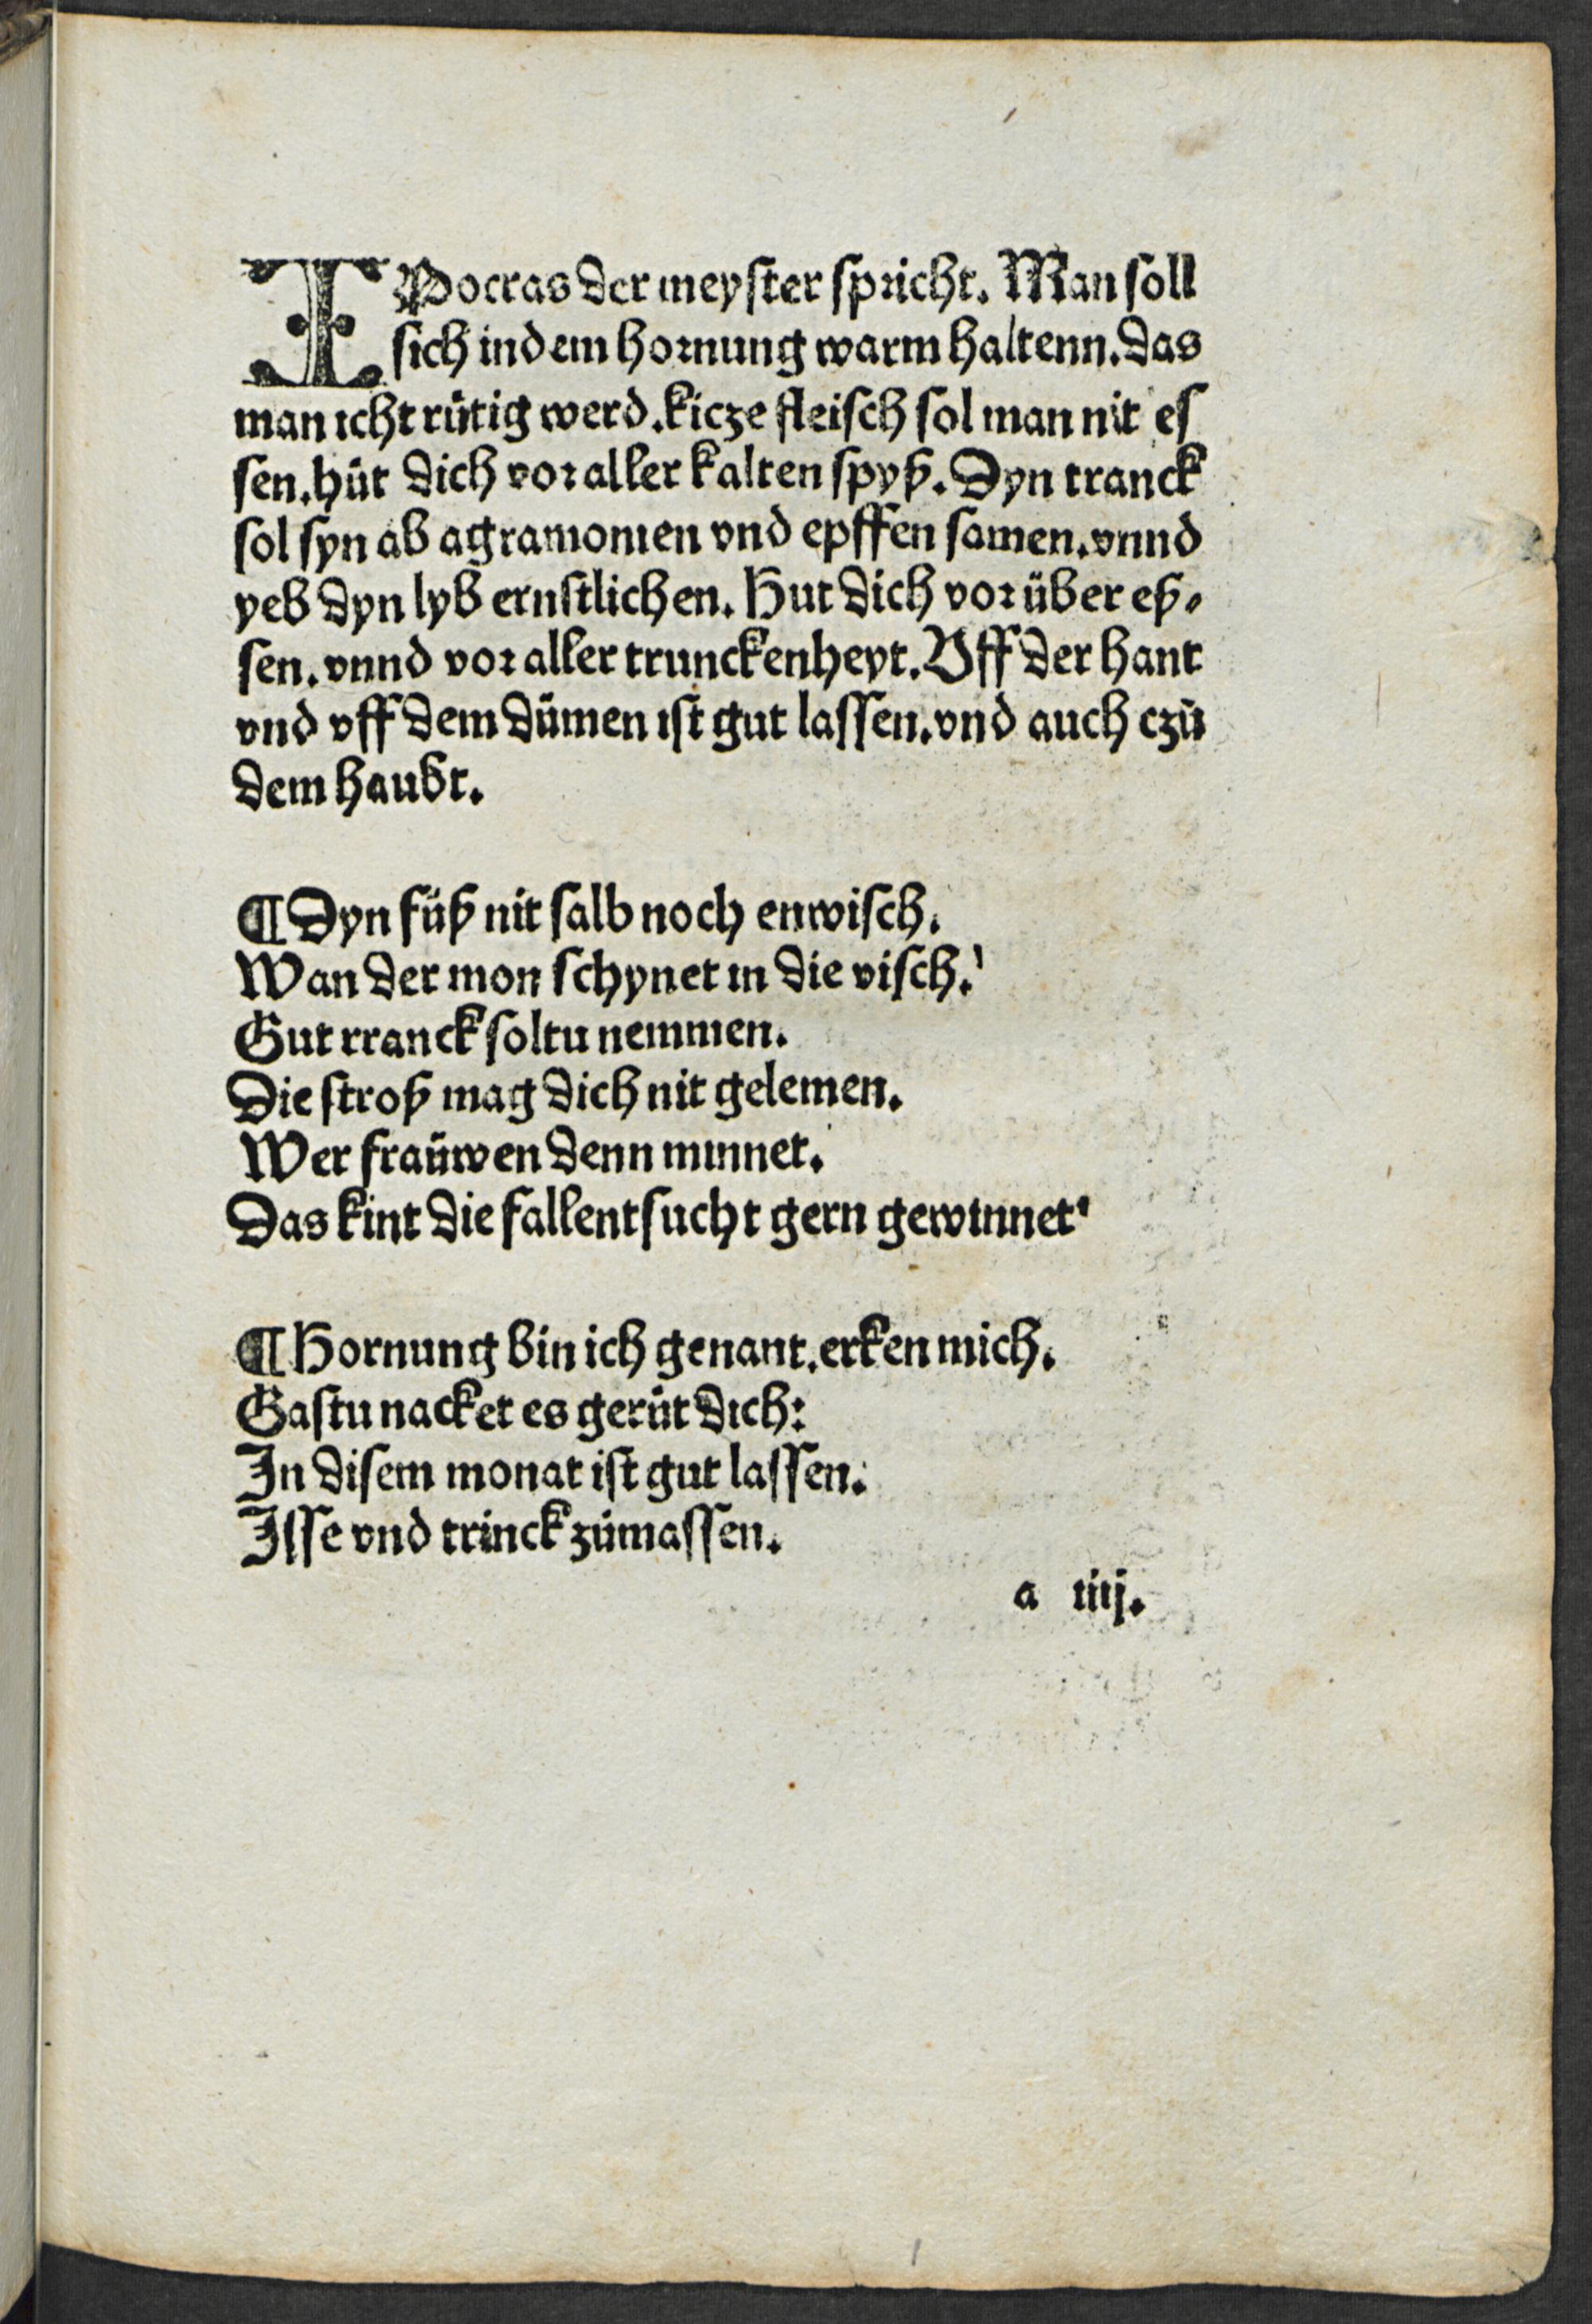 IPocras der meyster spricht. Man soll
sich in dem hornung warm haltenn. das
man icht rütig werd. kicze fleisch sol man nit es
sen. hüt dich vor aller kalten spyß. Dyn tranck
sol syn ab agramonien vnd epffen samen. vnnd
yeb dyn lyb ernstlichen. Hut dich vor über eß⸗
sen. vnnd vor aller trunckenheyt. Vff der hant
vnd vff dem dümen ist gut lassen. vnd auch czů
dem haubt.
¶ Dyn füß nit salb noch enwisch.
Wan der mon schynet in die visch.
Gut rranck soltu nemmen.
Die stroß mag dich nit gelemen.
Wer fraüwen denn minnet.
Das kint die fallentsucht gern gewinnet
¶ Hornung bin ich genant. erken mich.
Gastu nacket es gerüt dich:
In disem monat ist gut lassen.
Isse vnd trinck zümassen.
a iiij.